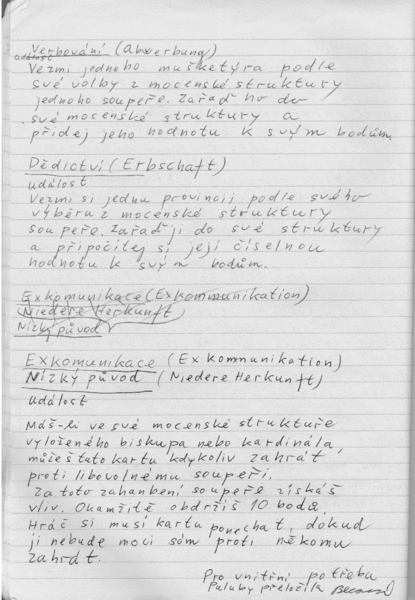 Verbování (Abwerbung)
událost
Vezmi jednoho mušketýra podle
své volby z mocenské struktury
jednoho soupeře. Zařaď ho do
své mocenské struktury a
přidej jeho hodnotu k svým bodům.
Dědictví (Erbschaft)
událost
Vezmi si jednu provincii podle svého
výběru z mocenské struktury
soupeře. Zařaď ji do své struktury
a připočítej si její číselnou
hodnotu k svým bodům.
Exkomunikace (Exkommunikation)
Niedere Herkunft)
Nízký původ
Exkomunikace (Exkommunikation)
Nízký původ (Niedere Herkunft)
událost
Máš-li ve své mocenské struktuře
vyloženého biskupa nebo kardinála,
můžeš tuto kartu kdykoliv zahrát
proti libovolnému soupeři.
Za toto zahanbení soupeře získáš
vliv. Okamžitě obdržíš 10 bodů.
Hráč si musí kartu ponechat, dokud
ji nebude moci sám proti někomu
zahrát.
Pro vnitřní potřebu
Paluby přeložila